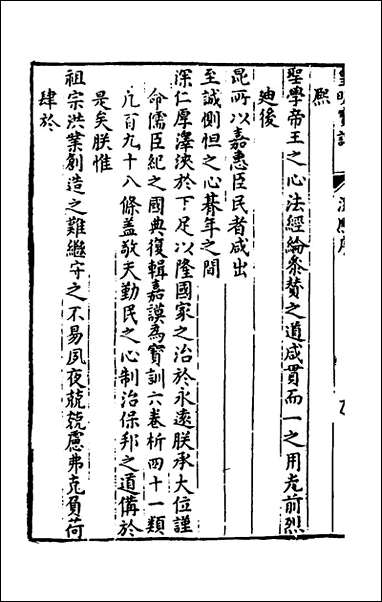 皇明寶訓
熙
聖學帝王之心法經綸參贊之道咸貫而一之用光前烈
迪後
昆所以嘉惠臣民者咸出
至誠惻怛之心朞年之間
深仁厚澤浹於下足以隆國家之治於永遠朕承大位謹
命儒臣紀之國典復輯嘉謨為寶訓六卷析四十一類
凡百九十八條蓋敬天勤民之心制治保邦之道備於
是矣朕惟
祖宗洪業創造之難繼守之不易夙夜兢兢慮弗克負荷
肆於